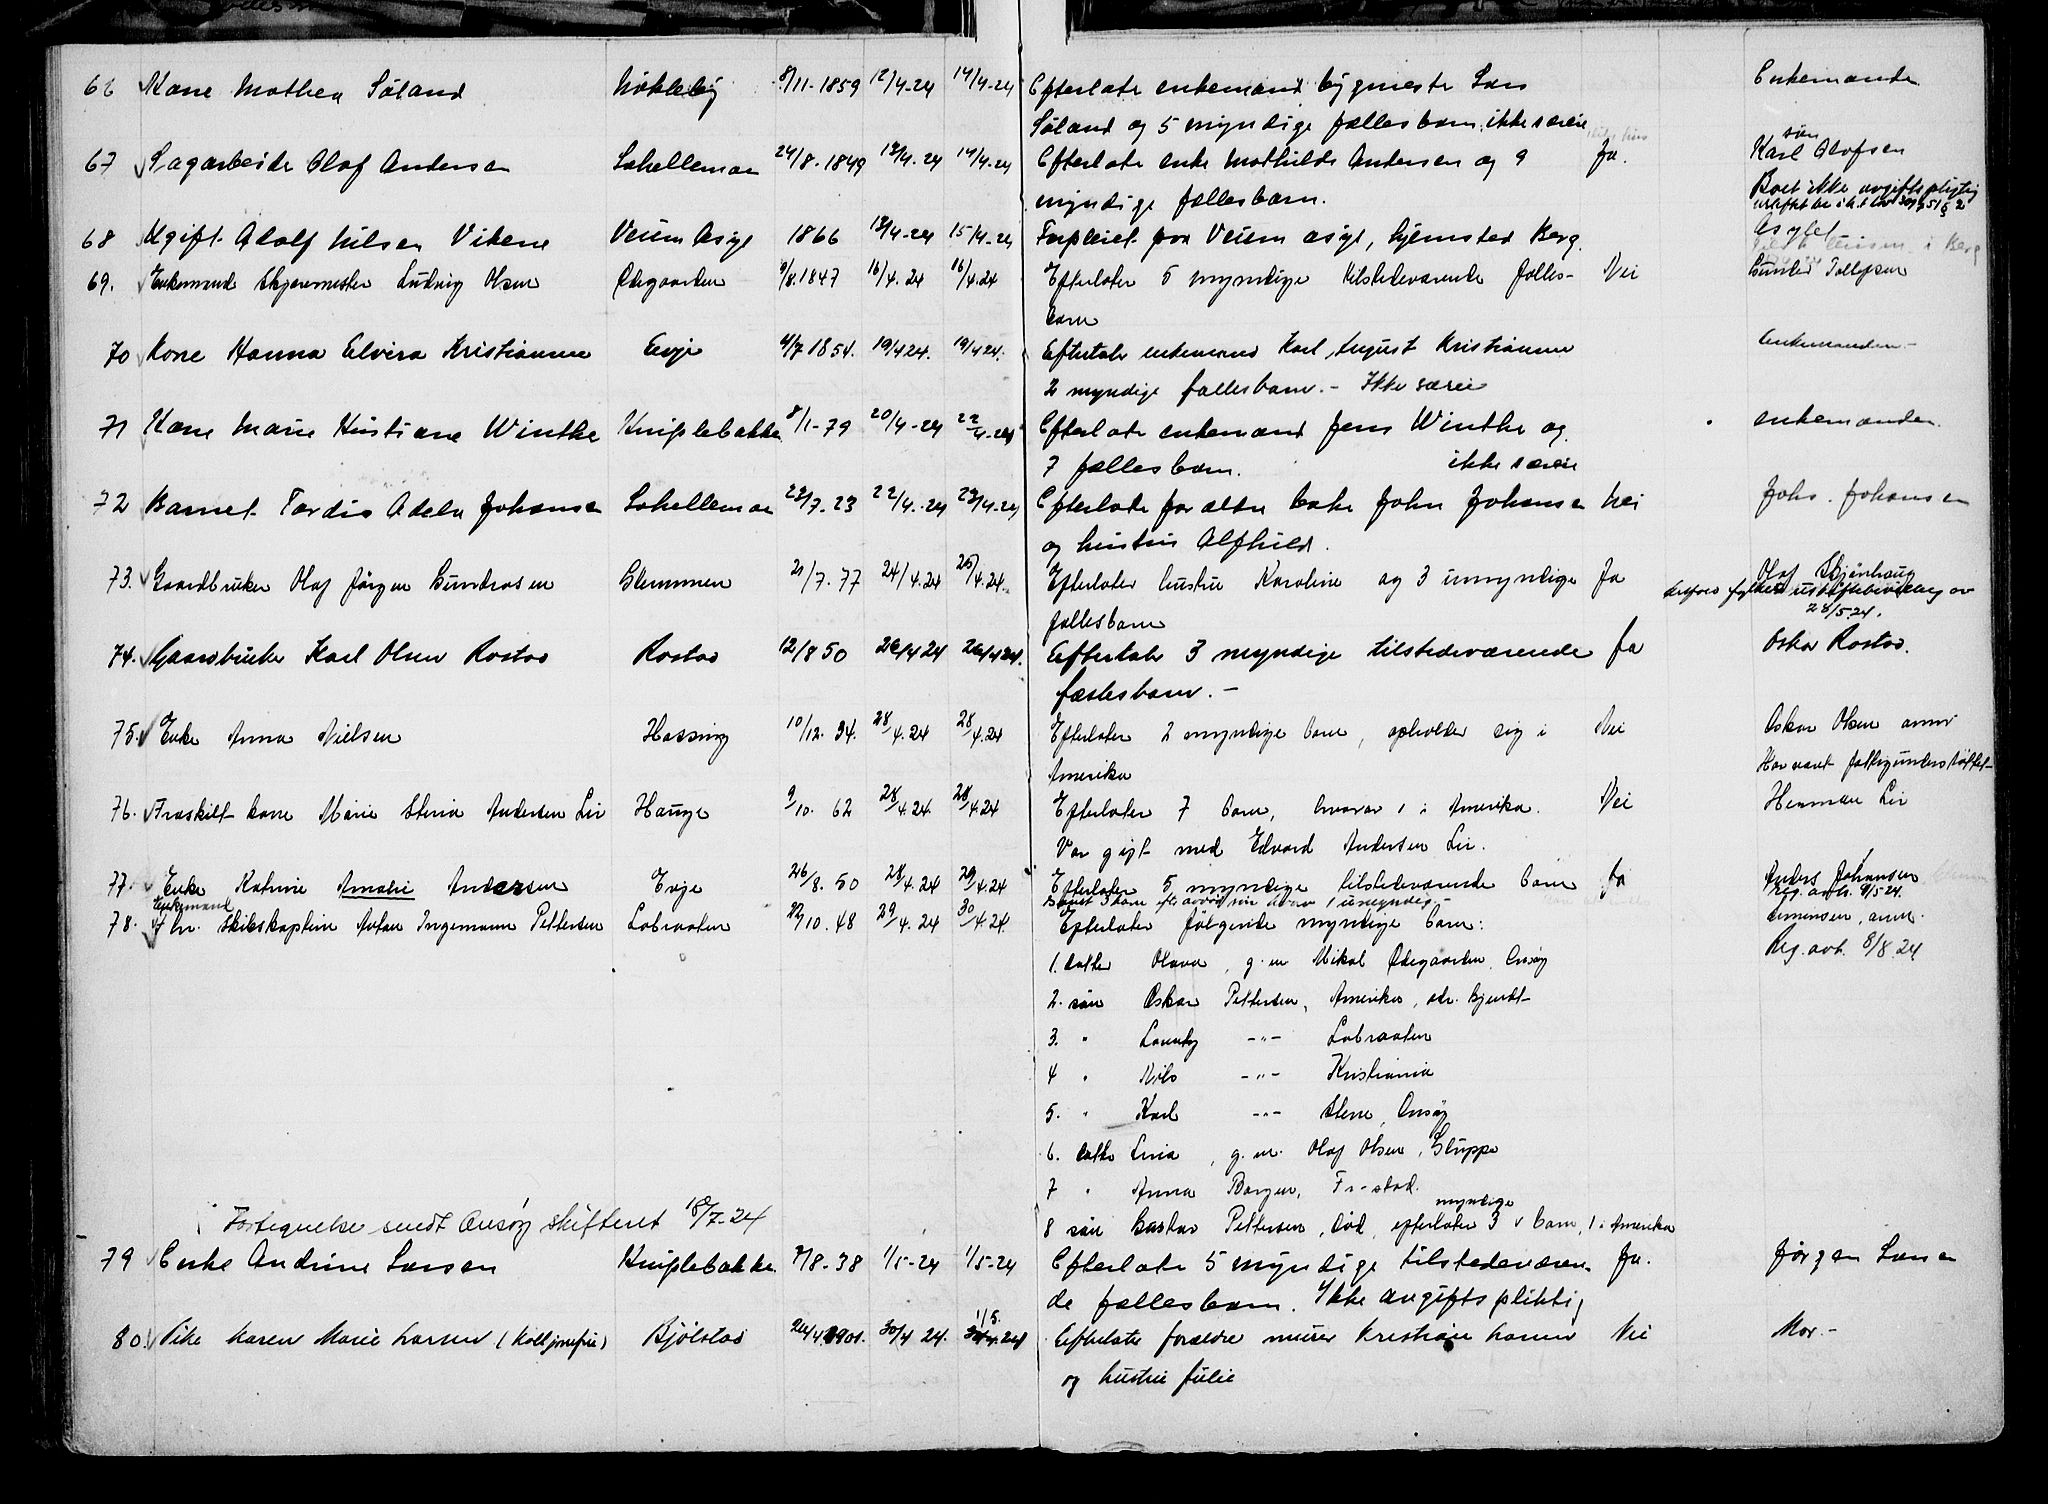 66 Kone Mathea Søland Nøkleby 8/11-1859 12/4-24 14/4-24 Efterlater enkemand bygmester Lars Enkemanden
Søland og 5 myndige fællesbarn, ikke særeie
67 Sagarbeider Olaf Andersen Lahellemoen 24/8-1849 12/4-24 14/4-24 Efterlater enke Mathilde Andersen og 9 Ja. søn Karl Olofsen
myndige fællesbarn. Boet ikke avgiftspligtig
68 Ugift Adolf Nilsen Vikene Veum Asyl 1866 13/4-24 15/4-24 Forpleiet paa Veum asyl, hjemsted Berg. Asylet
69. Enkemand Skjærmester Ludvig Olsen Ødegaarden 9/8.1847 16/4.24 16/4.24 Efterlater 5 myndige tilstedeværende fælles- Nei
barn
70 Kone Hanna Elvira Kristiansen Evje 4/7 1854. 19/4 24. 19/4 24. Efterlater enkemand Karl August Kristiansen enkemanden-
2 myndige fællesbarn.- Ikke særeie
71 Kone Marie Kristiane Winthe Kniplebakken 8/1-79 20/4-24 22/4-24 Efterlater enkemand Jens Winthe og enkemanden.
7 fællesbarn. ikke særeie
72 Barnet Tordis Adele Johansen Lahellemoen 22/7-23 22/4-24 23/4-24 Efterlater forældre Johan Johansen Nei Johs. Johansen
og hustru Alfhild.
73. Gaardbruker Olaf Jørgen Gundrosen Glemmen 21/7.77 24/4.24 25/4.24. Efterlater hustru Karoline og 3 umyndige Ja Olaf
fællesbarn 28/5.24.
74. Gaardbruker Karl Olsen Rostad Rostad 12/8 50 26/4 24 26/4 24. Efterlater 3 myndige tilstedeværende Ja Oskar Rostad.
fællesbarn.-
75. Enke Anna Nielsen Hassing 10/12. 34. 28/4.24 28/4.24 Efterlater 2 myndige barn, opholder sig i Nei Oskar Olsen anm
Amerika Har været fattigunderstøttet
76. Fraskilt kone Marie Stenia Andersen Lie Hauge 9/10. 62 28/4.24. 28/4.24 Efterlater 7 barn, hvorav 1 i Amerika. Nei Herman Lie
Var gift med Edvard Andersen Lie.
77. Enke Katrine Amalie Andersen Evje 26/8. 50 28/4.24 29/4.24 Efterlater 5 myndige tilstedeværende barn Ja Anders Johansen
Reg. avh. 9/5 24.
78. Enkemand Fhv. Skibskaptein Anton Ingemann Pettersen Labraaten 22/10. 48 29/4.24 30/4.24. Efterlater følgende myndige barn: Simensen, anm.
Reg. avh. 8/8.24
1. datter Olava, g. m. Mikal Ødegaarden, Onsøy
2. søn Oskar Pettersen, Amerika, adr. kjendt
3. " Lauritz -"- Labraaten
4 " Nils -"- Kristiania
5. " Karl -"- Slevik, Onsøy
6. datter Lina, g. m. Olaf Olsen, Gluppe
7 " Anna Borgen, Fr-stad.
Fortegnelse sendt Onsøy skifteret 18/7-24
8 søn Gustav Pettersen, død, efterlater 3 myndige barn, 1 i Amerika
79 Enke Andrine Larsen Kniplebakken 7/8-38 1/5-24 1/5-24 Efterlater 5 myndige tilstedeværen- Ja. Jørgen Larsen
de fællesbarn. Ikke avgiftspliktig
80. Pike Karen Marie Larsen Bjølstad 24/4 1901. 30/4 24. 1/5. 24 Efterlater forældre murer Kristian Larsen Nei Mor.-
og hustru Julie